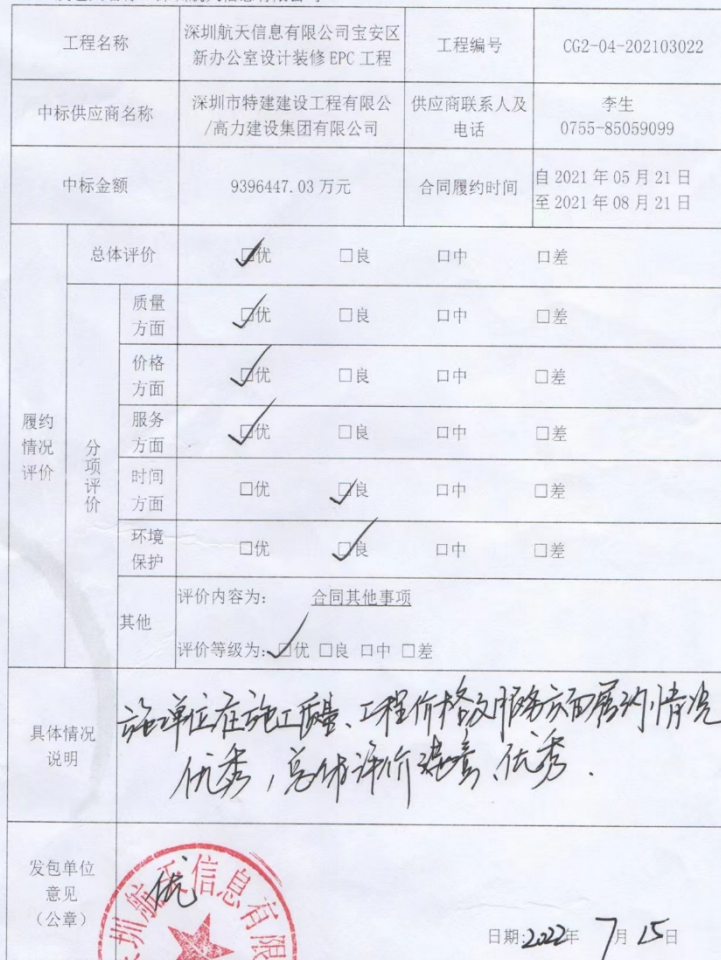 工程名称
深圳航天信息有限公司宝安区
新办公室设计装修 EPC 工程
工程编号
CG2-04-202103022
中标供应商名称
深圳市特建建设工程有限公
/高力建设集团有限公司
供应商联系人及
电话
李生
0755-85059099
中标金额
9396447.03 万元
合同履约时间
自 2021 年 05 月 21 日
至 2021 年 08 月 21 日
履约
情况
评价
总体评价
☑优 □良 □中 □差
分项评价
质量
方面
☑优 □良 □中 □差
价格
方面
☑优 □良 □中 □差
服务
方面
☑优 □良 □中 □差
时间
方面
□优 ☑良 □中 □差
环境
保护
□优 ☑良 □中 □差
其他
评价内容为: 合同其他事项
评价等级为: ☑优 □良 □中 □差
具体情况
说明
施工单位在施工质量、工程价格及服务方面履约情况
优秀,总体评价 优秀.
发包单位
意见
(公章)
优
深圳航天信息有限
日期:2022年 7月 15日